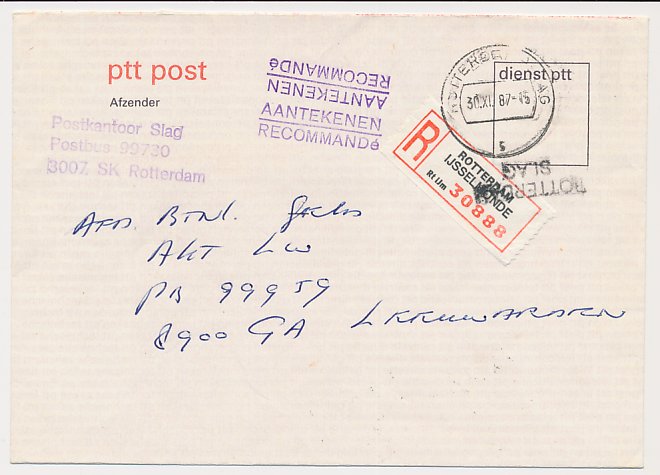 ptt post
Afzender
Postkantoor Slag
Postbus 99730
3007 SK Rotterdam
AANTEKENEN
RECOMMANDé
AANTEKENEN
RECOMMANDé
dienst ptt
30.XI.87-15
S
R
ROTTERDAM
IJSSELMONDE
Rt IJm
30888
SLAG
AFD. BTNL.
AKT LW
PB 99959
8900 GA LEEUWARDEN